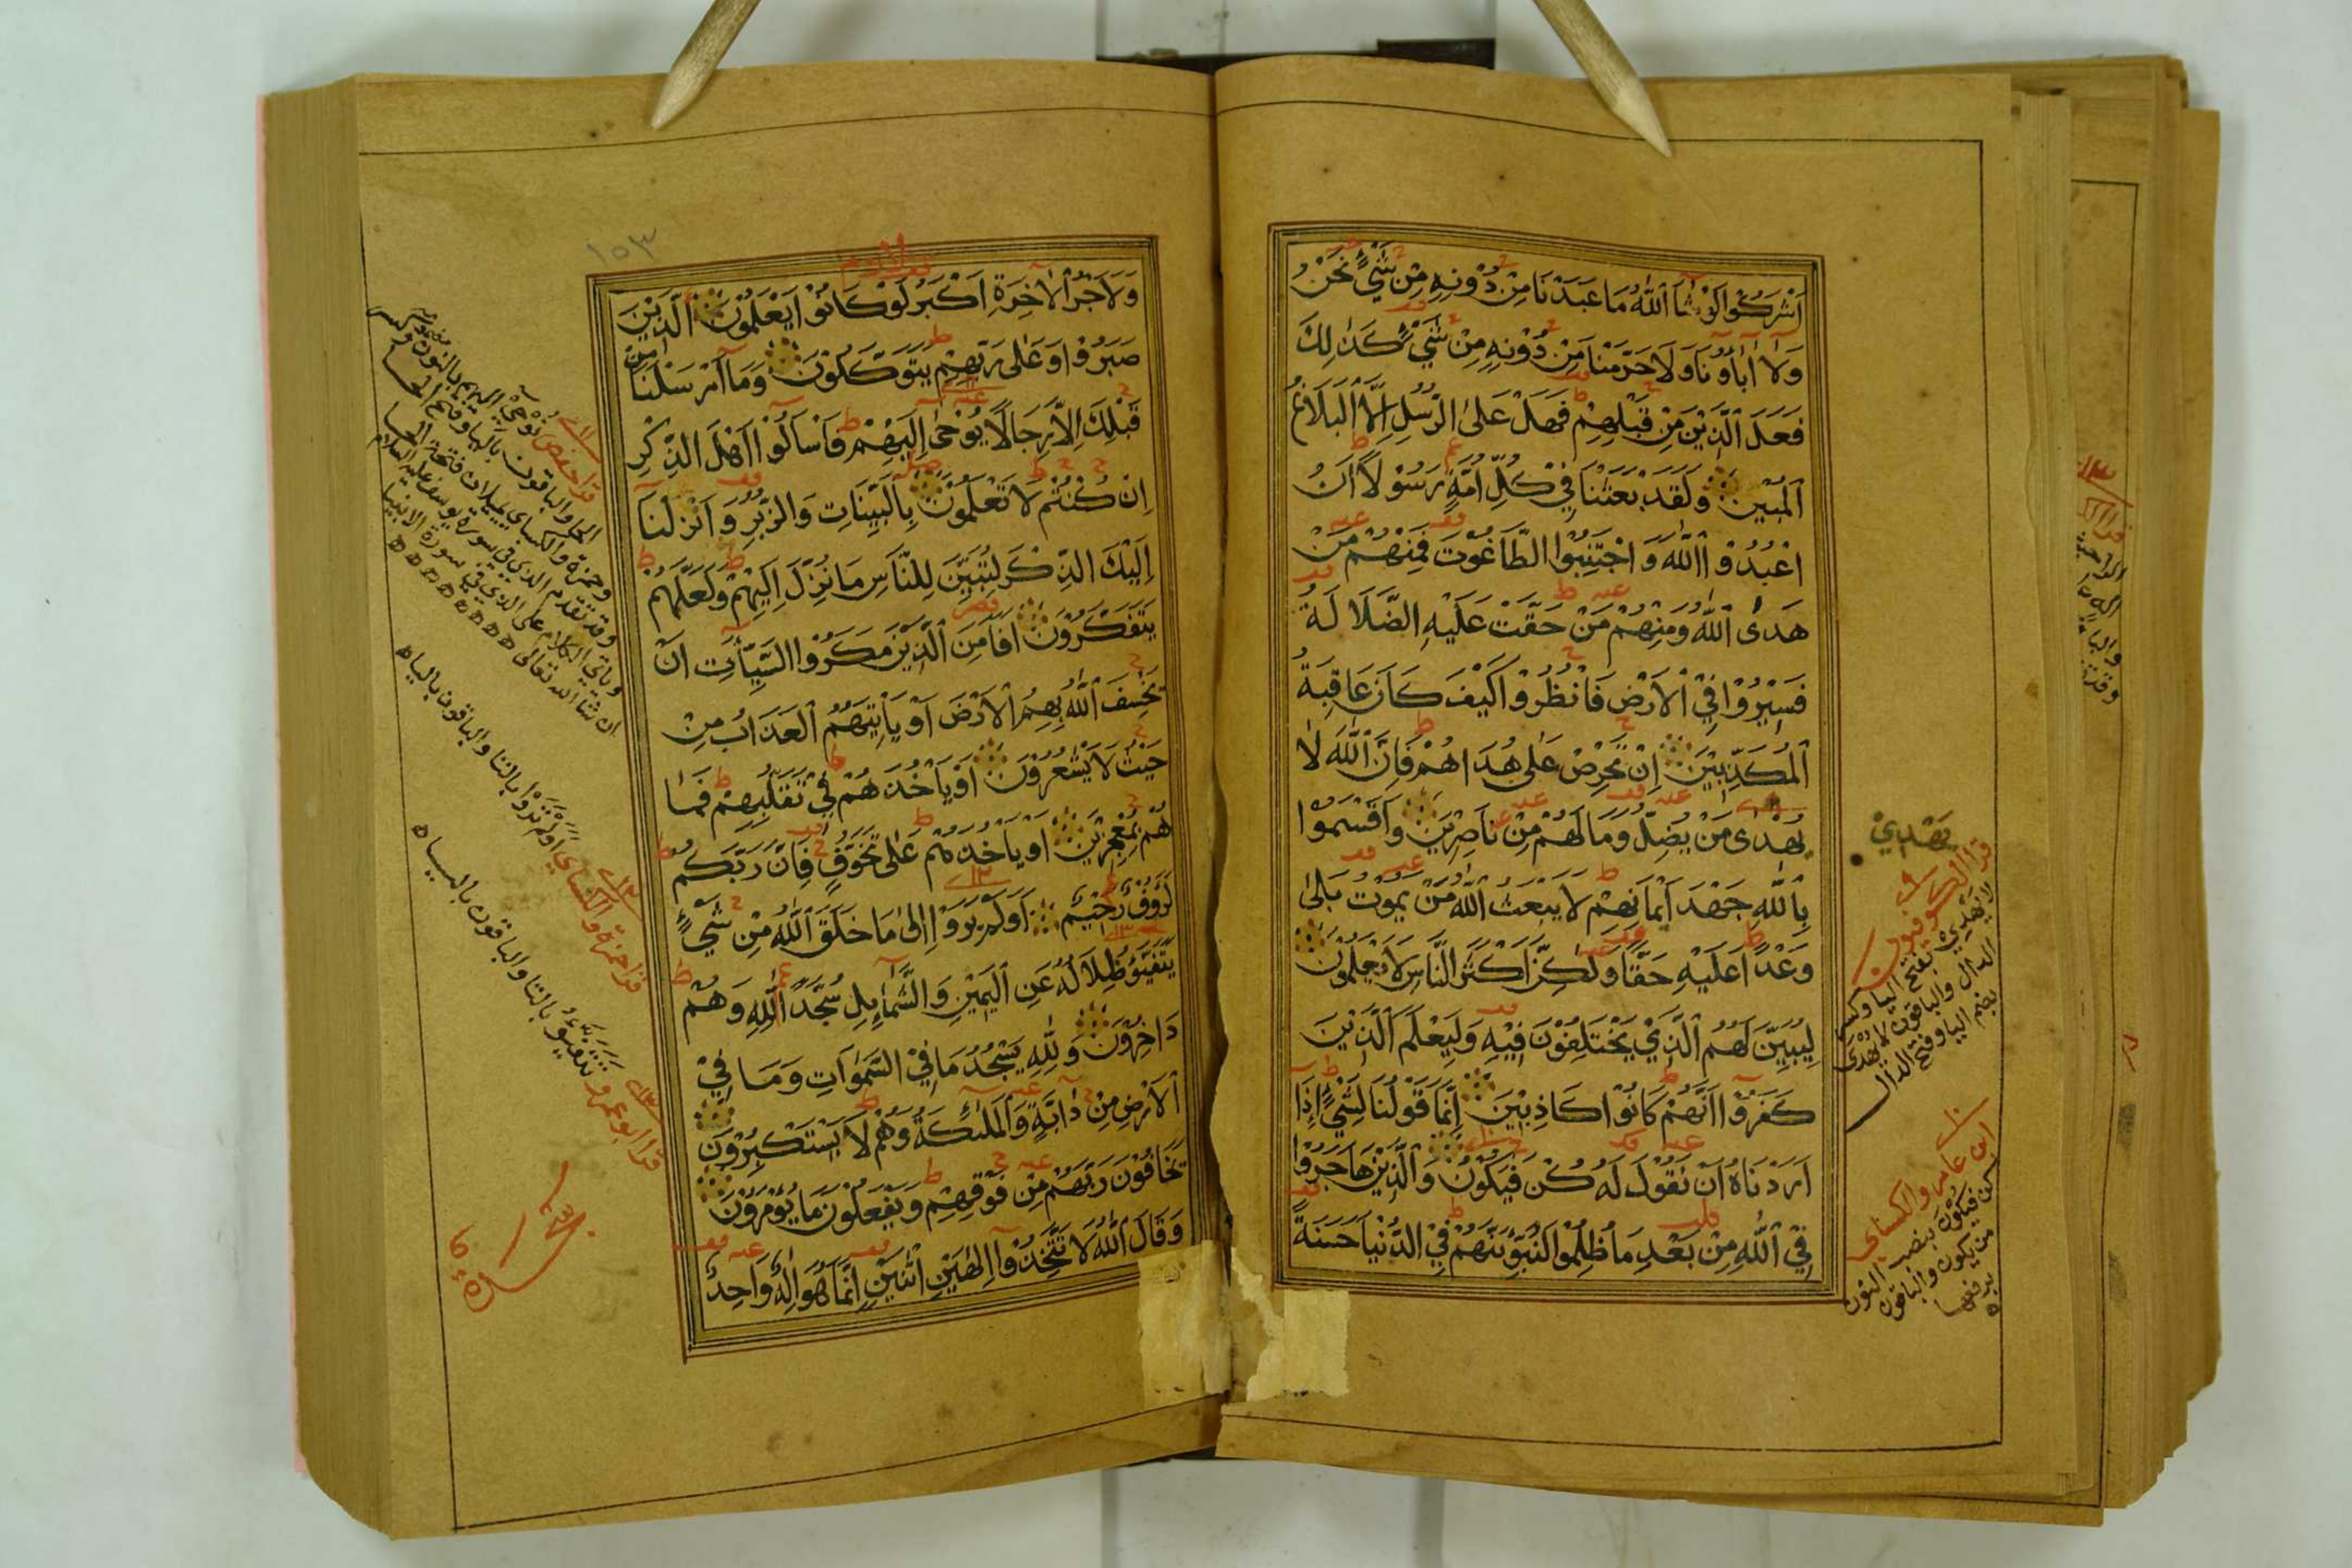 أَشْرَكُوْا لَوْ شَآءَ ٱللّٰهُ مَا عَبَدْنَا مِنْ دُوْنِهٖ مِنْ شَيْءٍ نَحْنُ
وَلَآ اٰبَآؤُنَا وَلَا حَرَّمْنَا مِنْ دُوْنِهٖ مِنْ شَيْءٍ كَذٰلِكَ
فَعَلَ ٱلَّذِيْنَ مِنْ قَبْلِهِمْ فَهَلْ عَلَى ٱلرُّسُلِ اِلَّا ٱلْبَلَاغُ
ٱلْمُبِيْنُ وَلَقَدْ بَعَثْنَا فِيْ كُلِّ اُمَّةٍ رَسُوْلًا اَنِ
اعْبُدُوا ٱللّٰهَ وَاجْتَنِبُوا الطَّاغُوْتَ فَمِنْهُمْ مَنْ
هَدَى ٱللّٰهُ وَمِنْهُمْ مَنْ حَقَّتْ عَلَيْهِ الضَّلَالَةُ
فَسِيْرُوْا فِي ٱلْاَرْضِ فَانْظُرُوْا كَيْفَ كَانَ عَاقِبَةُ
ٱلْمُكَذِّبِيْنَ اِنْ تَحْرِصْ عَلٰى هُدَاهُمْ فَاِنَّ ٱللّٰهَ لَا
يُهْدٰى مَنْ يُضِلُّ وَمَا لَهُمْ مِنْ نَاصِرِيْنَ وَاَقْسَمُوْا
بِٱللّٰهِ جَهْدَ اَيْمَانِهِمْ لَا يَبْعَثُ ٱللّٰهُ مَنْ يَمُوْتُ بَلٰى
وَعْدًا عَلَيْهِ حَقًّا وَلٰكِنَّ اَكْثَرَ النَّاسِ لَا يَعْلَمُوْنَ
لِيُبَيِّنَ لَهُمُ ٱلَّذِيْ يَخْتَلِفُوْنَ فِيْهِ وَلِيَعْلَمَ ٱلَّذِيْنَ
كَفَرُوْٓا اَنَّهُمْ كَانُوْا كَاذِبِيْنَ اِنَّمَا قَوْلُنَا لِشَيْءٍ اِذَآ
اَرَدْنَاهُ اَنْ نَقُوْلَ لَهُ كُنْ فَيَكُوْنُ وَٱلَّذِيْنَ هَاجَرُوْا
فِي ٱللّٰهِ مِنْ بَعْدِ مَا ظُلِمُوْا لَنُبَوِّئَنَّهُمْ فِي الدُّنْيَا حَسَنَةً
يَهْدِيْ
قرا الكوفيون
لا يَهْدِيْ بفتح اليا وكسر
الدال والباقون لا يُهْدَى
بضم اليا وفتح الدال
ابن عامر والكساي
كن فيكونَ بنصب النون
من يكون والباقون
برفعها
١٥٣
وَلَاَجْرُ ٱلْاٰخِرَةِ اَكْبَرُ لَوْ كَانُوْا يَعْلَمُوْنَ ٱلَّذِيْنَ
صَبَرُوْا وَعَلٰى رَبِّهِمْ يَتَوَكَّلُوْنَ وَمَآ اَرْسَلْنَا مِنْ
قَبْلِكَ اِلَّا رِجَالًا يُوْحٰى اِلَيْهِمْ فَاسْاَلُوْٓا اَهْلَ الذِّكْرِ
اِنْ كُنْتُمْ لَا تَعْلَمُوْنَ بِٱلْبَيِّنَاتِ وَالزُّبُرِ وَاَنْزَلْنَآ
اِلَيْكَ الذِّكْرَ لِتُبَيِّنَ لِلنَّاسِ مَا نُزِّلَ اِلَيْهِمْ وَلَعَلَّهُمْ
يَتَفَكَّرُوْنَ اَفَاَمِنَ ٱلَّذِيْنَ مَكَرُوا السَّيِّاٰتِ اَنْ
يَخْسِفَ ٱللّٰهُ بِهِمُ ٱلْاَرْضَ اَوْ يَاْتِيَهُمُ ٱلْعَذَابُ مِنْ
حَيْثُ لَا يَشْعُرُوْنَ اَوْ يَاْخُذَهُمْ فِيْ تَقَلُّبِهِمْ فَمَا
هُمْ بِمُعْجِزِيْنَ اَوْ يَاْخُذَهُمْ عَلٰى تَخَوُّفٍ فَاِنَّ رَبَّكُمْ
لَرَؤُفٌ رَحِيْمٌ اَوَلَمْ يَرَوْا اِلٰى مَا خَلَقَ ٱللّٰهُ مِنْ شَيْءٍ
يَتَفَيَّؤُ ظِلَالُهُ عَنِ ٱلْيَمِيْنِ وَالشَّمَآئِلِ سُجَّدًا لِلّٰهِ وَهُمْ
دَاخِرُوْنَ وَلِلّٰهِ يَسْجُدُ مَا فِي السَّمٰوَاتِ وَمَا فِي
ٱلْاَرْضِ مِنْ دَآبَّةٍ وَٱلْمَلٰٓئِكَةُ وَهُمْ لَا يَسْتَكْبِرُوْنَ
يَخَافُوْنَ رَبَّهُمْ مِنْ فَوْقِهِمْ وَيَفْعَلُوْنَ مَا يُؤْمَرُوْنَ
وَقَالَ ٱللّٰهُ لَا تَتَّخِذُوْٓا اِلٰهَيْنِ ٱثْنَيْنِ اِنَّمَا هُوَ اِلٰهٌ وَاحِدٌ
قرا حفص نُوْحِيْٓ اليهم بالنون وكسر
الحا والباقون باليا وفتح الحا
وحمزة والكساي يميلان فتحة الحا
وقد تقدم الذي في سورة يوسف عليه السلام
وياتي الكلام على الذي في سورة الانبيا
ان شا الله تعالى ه ه ه ه ه ه ه
قرا حمزة والكساي اَوَلَمْ تَرَوْا بالتا والباقون باليا ه
قرا ابو عمرو تَتَفَيَّؤُ بالتا والباقون باليا ه